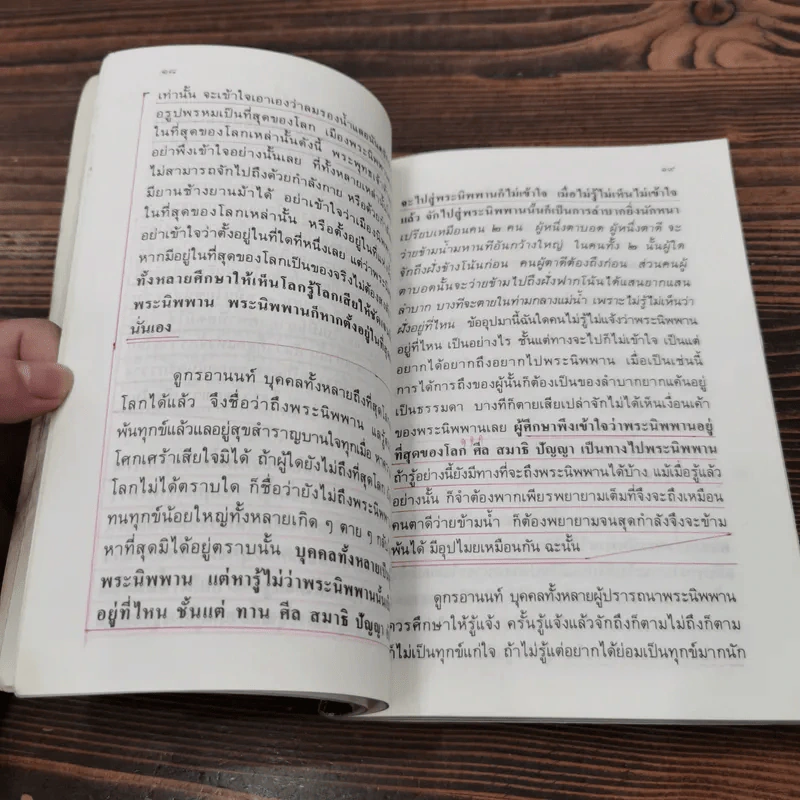 ๑๘
เท่านั้น จะเข้าใจเอาเองว่าลมรองน้ำและ
อรูปพรหมเป็นที่สุดของโลก เมืองพระนิพ
ในที่สุดของโลกเหล่านั้นดังนี้ พระพุทธเจ้า
อย่าพึงเข้าใจอย่างนั้นเลย ที่ทั้งหลายเหล่านั้น
ไม่สามารถจักไปถึงด้วยกำลังกาย หรือด้วย
มียานช้างยานม้าได้ อย่าเข้าใจว่าเมืองนิพ
ในที่สุดของโลกเหล่านั้น หรือตั้งอยู่ในที่
อย่าเข้าใจว่าตั้งอยู่ในที่ใดที่หนึ่งเลย แต่ว่าพระ
หากมีอยู่ในที่สุดของโลกเป็นของจริงไม่ต้อง
ทั้งหลายศึกษาให้เห็นโลกรู้โลกเสียให้ชัด
พระนิพพาน พระนิพพานก็หากตั้งอยู่ในที่สุด
นั่นเอง
ดูกรอานนท์ บุคคลทั้งหลายถึงที่สุด
โลกได้แล้ว จึงชื่อว่าถึงพระนิพพาน แล
พ้นทุกข์แล้วแลอยู่สุขสำราญบานใจทุกเมื่อ หา
โศกเศร้าเสียใจมิได้ ถ้าผู้ใดยังไม่ถึงที่สุด
โลกไม่ได้ตราบใด ก็ชื่อว่ายังไม่ถึงพระนิพ
ทนทุกข์น้อยใหญ่ทั้งหลายเกิด ๆ ตาย ๆ
หาที่สุดมิได้อยู่ตราบนั้น บุคคลทั้งหลาย
พระนิพพาน แต่หารู้ไม่ว่าพระนิพพานนั้น
อยู่ที่ไหน ชั้นแต่ ทาน ศีล สมาธิ ปัญญา
๑๙
จะไปสู่พระนิพพานก็ไม่เข้าใจ เมื่อไม่รู้ไม่เห็นไม่เข้าใจ
แล้ว จักไปสู่พระนิพพานนั้นก็เป็นการลำบากยิ่งนักหนา
เปรียบเหมือนคน ๒ คน ผู้หนึ่งตาบอด ผู้หนึ่งตาดี จะ
ว่ายข้ามน้ำมหานทีอันกว้างใหญ่ ในคนทั้ง ๒ นั้นผู้ใด
จักถึงฝั่งข้างโน้นก่อน คนผู้ตาดีต้องถึงก่อน ส่วนคนผู้
ตาบอดนั้นจะว่ายข้ามไปถึงฝั่งฟากโน้นได้แสนยากแสน
ลำบาก บางทีจะตายในท่ามกลางแม่น้ำ เพราะไม่รู้ไม่เห็นว่า
ฝั่งอยู่ที่ไหน ข้ออุปมานี้ฉันใดคนไม่รู้ไม่แจ้งว่าพระนิพพาน
อยู่ที่ไหน เป็นอย่างไร ชั้นแต่ทางจะไปก็ไม่เข้าใจ เป็นแต่
อยากได้อยากถึงอยากไปพระนิพพาน เมื่อเป็นเช่นนี้
การได้การถึงของผู้นั้นก็ต้องเป็นของลำบากยากแค้นอยู่
เป็นธรรมดา บางทีก็ตายเสียเปล่าจักไม่ได้เห็นเงื่อนเค้า
ของพระนิพพานเลย ผู้ศึกษาพึงเข้าใจว่าพระนิพพานอยู่
ที่สุดของโลก ศีล สมาธิ ปัญญา เป็นทางไปพระนิพพาน
ถ้ารู้อย่างนี้ยังมีทางที่จะถึงพระนิพพานได้บ้าง แม้เมื่อรู้แล้ว
อย่างนั้น ก็จำต้องพากเพียรพยายามเต็มที่จึงจะถึงเหมือน
คนตาดีว่ายข้ามน้ำ ก็ต้องพยายามจนสุดกำลังจึงจะข้าม
พ้นได้ มีอุปไมยเหมือนกัน ฉะนั้น
ดูกรอานนท์ บุคคลทั้งหลายผู้ปรารถนาพระนิพพาน
ควรศึกษาให้รู้แจ้ง ครั้นรู้แจ้งแล้วจักถึงก็ตามไม่ถึงก็ตาม
ก็ไม่เป็นทุกข์แก่ใจ ถ้าไม่รู้แต่อยากได้ย่อมเป็นทุกข์มากนัก